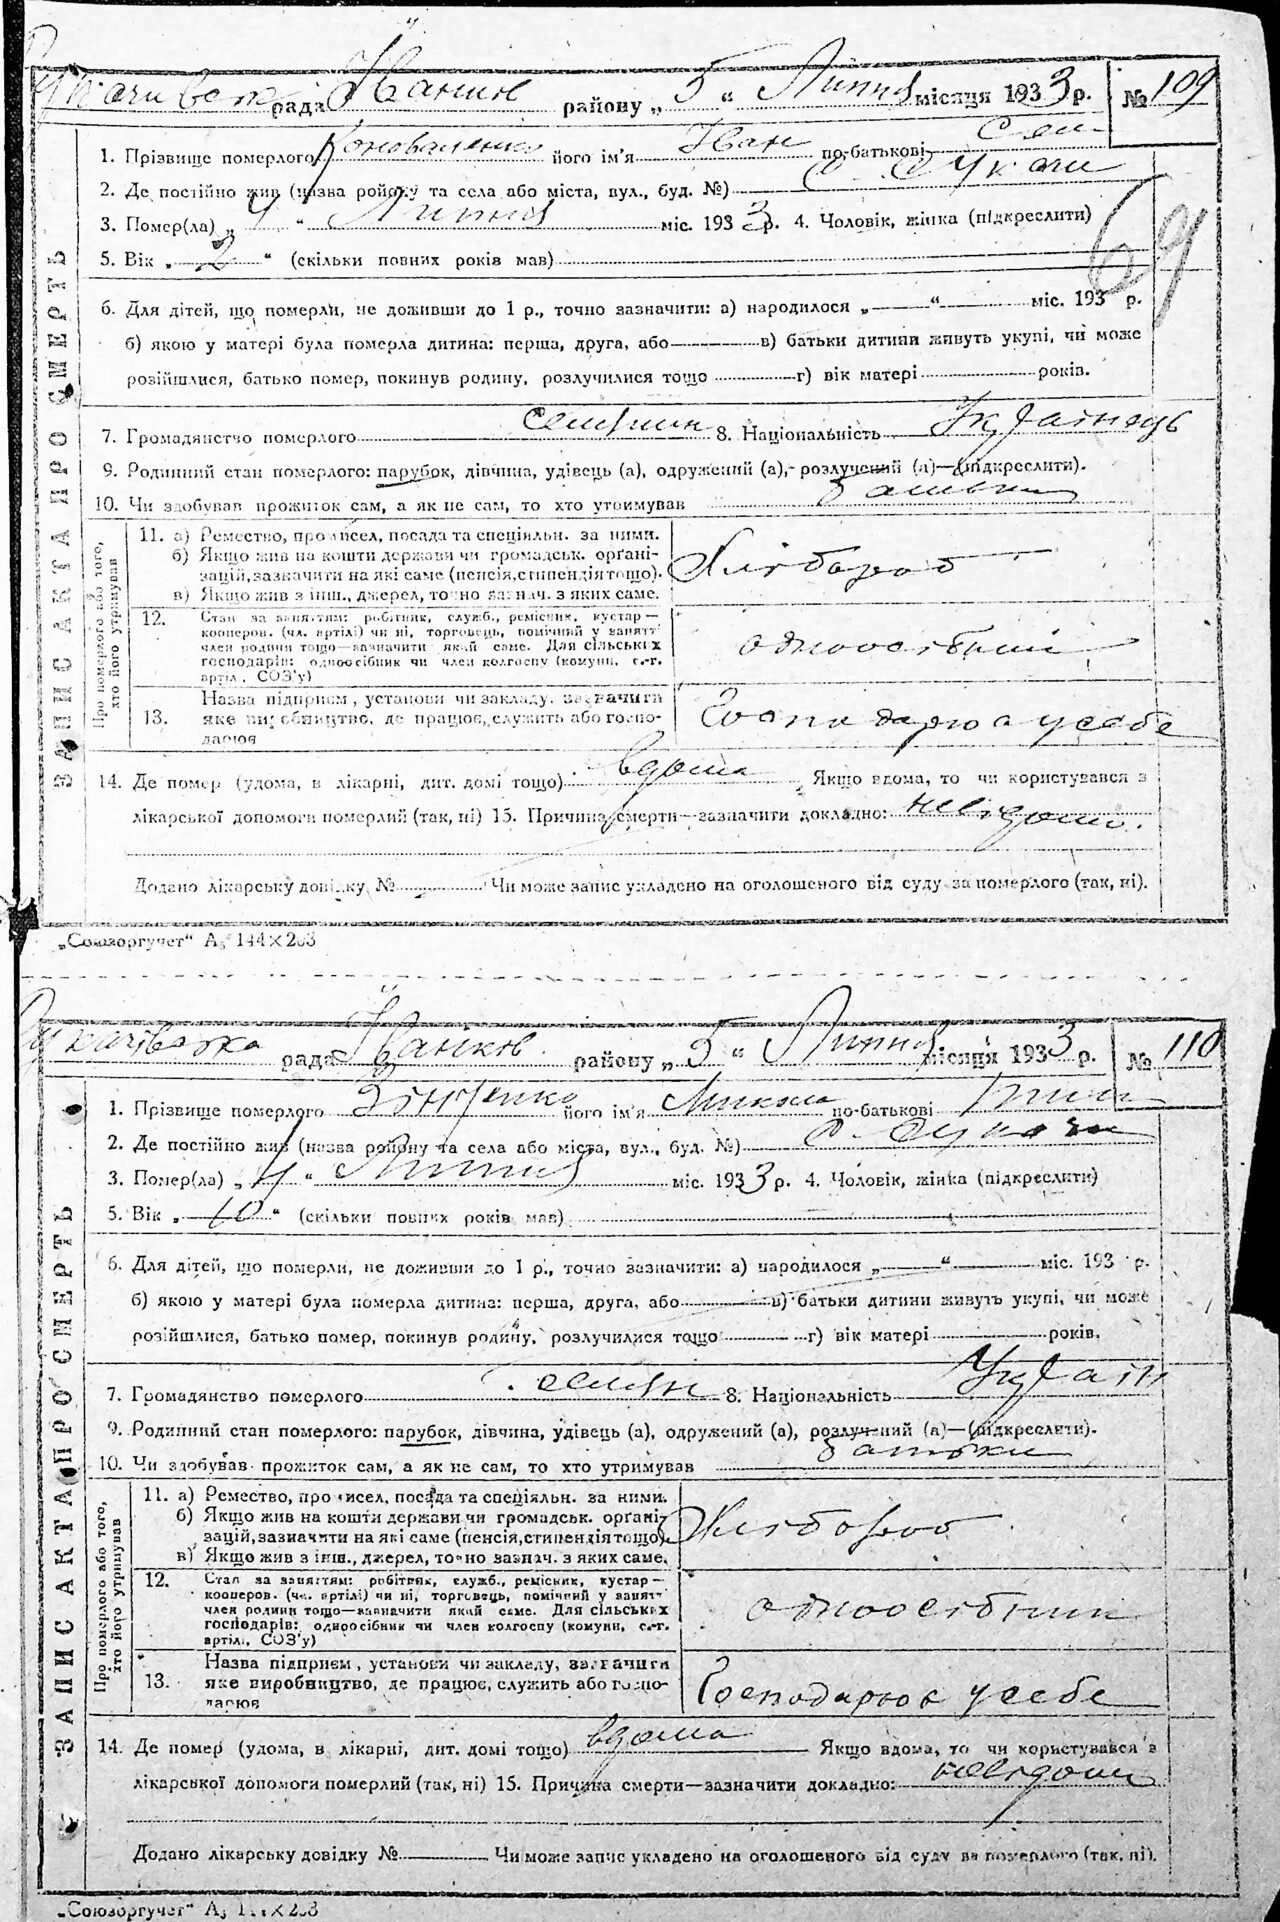 рада Іванків району „ 5 “ Липня місяця 1933 р. № 109
1. Прізвище померлого Коноваленко його ім'я Іван по-батькові Сем
2. Де постійно жив (назва ройону та села або міста, вул., буд. №) с. Сукачи
3. Помер(ла) „ 4 “ Липня міс. 1933 р. 4. Чоловік, жінка (підкреслити)
5. Вік „ 2 “ (скільки повних років мав)
69
6. Для дітей, що померли, не доживши до 1 р., точно зазначити: а) народилося „ “ міс. 193 р.
б) якою у матері була померла дитина: перша, друга, або в) батьки дитини живуть укупі, чи може
розійшлися, батько помер, покинув родину, розлучилися тощо г) вік матері років.
7. Громадянство померлого селянин 8. Національність Українець
9. Родинний стан померлого: парубок, дівчина, удівець (а), одружений (а), розлучений (а)—(підкреслити).
10. Чи здобував прожиток сам, а як не сам, то хто утримував батьки
ЗАПИС АКТА ПРО СМЕРТЬ
Про померлого або того, хто його утримував
11. а) Ремество, промисел, посада та спеціяльн. за ними.
б) Якщо жив на кошти держави чи громадськ. орґані-
зацій, зазначити на які саме (пенсія, стипендія тощо).
в) Якщо жив з інш., джерел, точно зазнач. з яких саме.
Хлібороб
12. Стан за заняттям: робітник, служб., ремісник, кустар—
кооперов. (чл. артілі) чи ні, торговець, помічний у занятт
член родини тощо—зазначити який саме. Для сільських
господарів: одноосібник чи член колгоспу (комуни, с.-г.
артіл., СОЗ'у)
одноосібник
13. Назва підприєм, установи чи закладу, зазначити
яке виробництво, де працює, служить або госпо-
дарює
Господарює у себе
14. Де помер (удома, в лікарні, дит. домі тощо) вдома Якщо вдома, то чи користувався з
лікарської допомоги померлий (так, ні) 15. Причина смерти—зазначити докладно: невідомо.
Додано лікарську довідку № Чи може запис укладено на оголошеного від суду за померлого (так, ні).
„Союзоргучет“ А5 144×203
рада Іванків району „ 5 “ Липня місяця 1933 р. № 110
1. Прізвище померлого Зінченко його ім'я Микола по-батькові
2. Де постійно жив (назва ройону та села або міста, вул., буд. №) с. Сукачи
3. Помер(ла) „ 4 “ Липня міс. 1933 р. 4. Чоловік, жінка (підкреслити)
5. Вік „ 10 “ (скільки повних років мав)
6. Для дітей, що померли, не доживши до 1 р., точно зазначити: а) народилося „ “ міс. 193 р.
б) якою у матері була померла дитина: перша, друга, або в) батьки дитини живуть укупі, чи може
розійшлися, батько помер, покинув родину, розлучилися тощо г) вік матері років.
7. Громадянство померлого селян 8. Національність Україн
9. Родинний стан померлого: парубок, дівчина, удівець (а), одружений (а), розлучений (а)—(підкреслити).
10. Чи здобував прожиток сам, а як не сам, то хто утримував батьки
ЗАПИС АКТА ПРО СМЕРТЬ
Про померлого або того, хто його утримував
11. а) Ремество, промисел, посада та спеціяльн. за ними.
б) Якщо жив на кошти держави чи громадськ. орґані-
зацій, зазначити на які саме (пенсія, стипендія тощо).
в) Якщо жив з інш., джерел, точно зазнач. з яких саме.
Хлібороб
12. Стан за заняттям: робітник, служб., ремісник, кустар—
кооперов. (чл. артілі) чи ні, торговець, помічний у занятт
член родини тощо—зазначити який саме. Для сільських
господарів: одноосібник чи член колгоспу (комуни, с.-г.
артіл., СОЗ'у)
одноосібник
13. Назва підприєм, установи чи закладу, зазначити
яке виробництво, де працює, служить або госпо-
дарює
Господарює у себе
14. Де помер (удома, в лікарні, дит. домі тощо) вдома Якщо вдома, то чи користувався з
лікарської допомоги померлий (так, ні) 15. Причина смерти—зазначити докладно: невідомо
Додано лікарську довідку № Чи може запис укладено на оголошеного від суду за померлого (так, ні).
„Союзоргучет“ А5 144×203